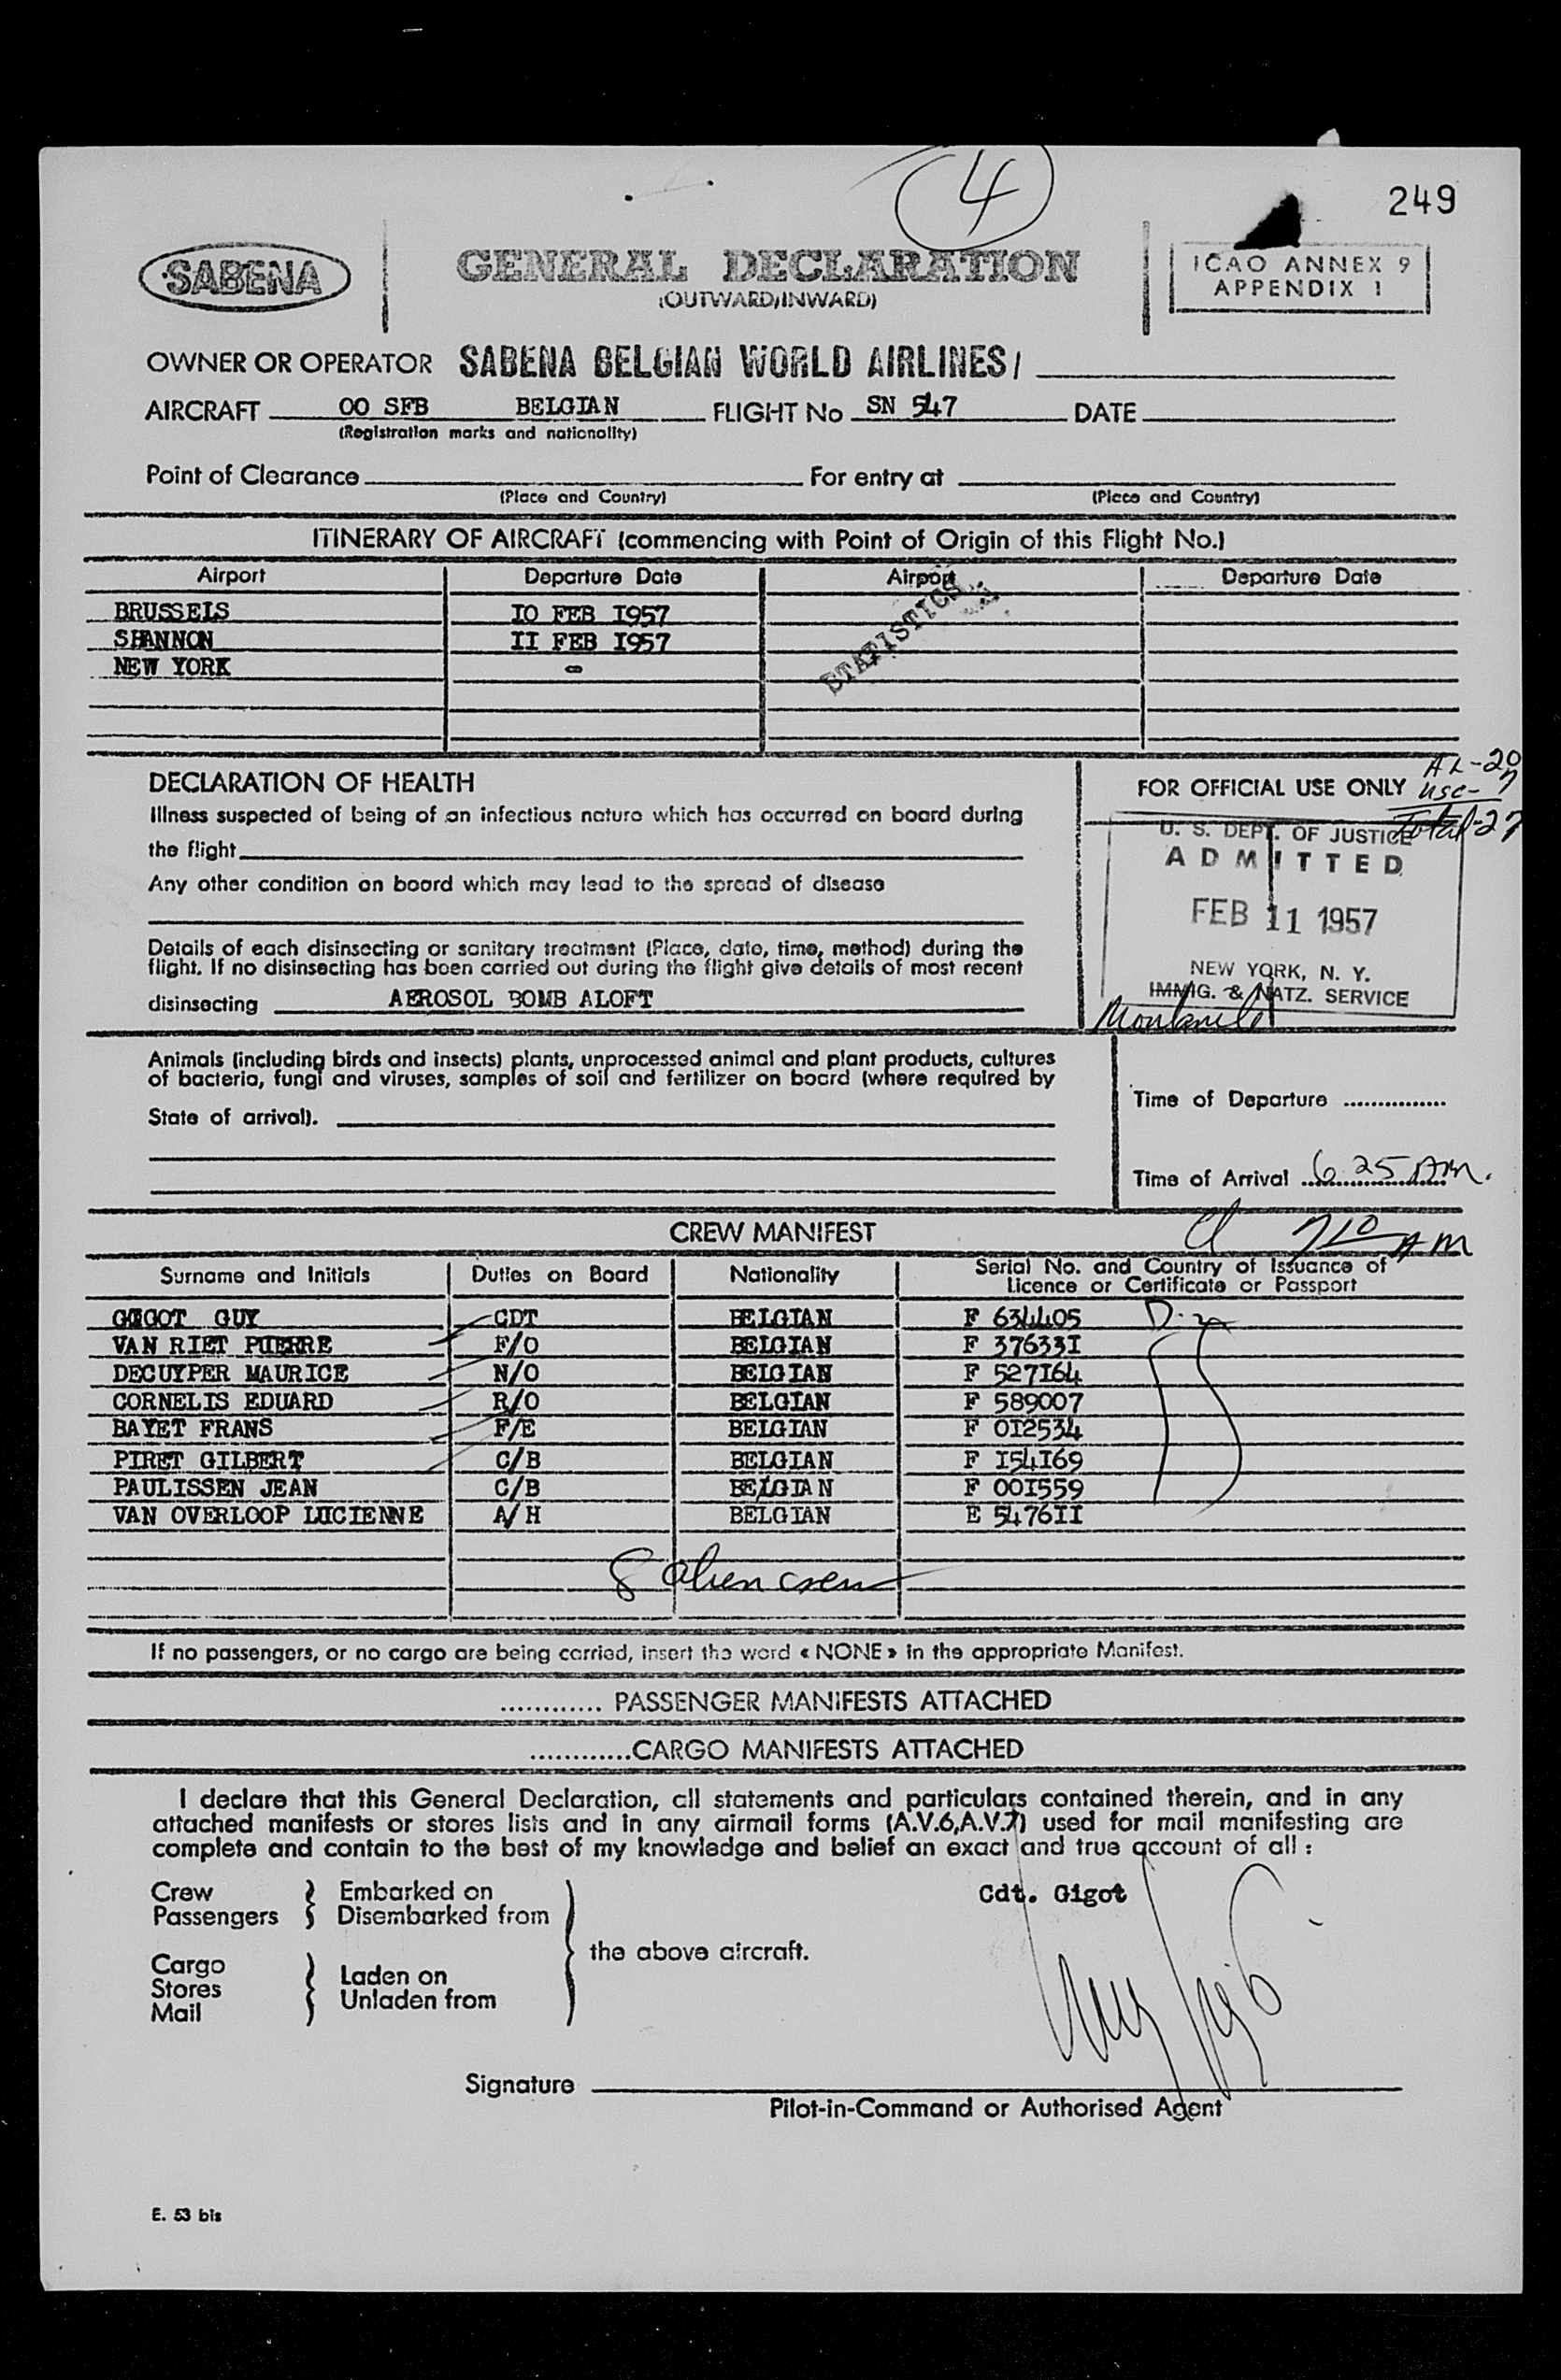 4
249
SABENA
GENERAL DECLARATION
(OUTWARD/INWARD)
ICAO ANNEX 9
APPENDIX 1
OWNER OR OPERATOR SABENA BELGIAN WORLD AIRLINES/
AIRCRAFT OO SFB BELGIAN FLIGHT No SN 547 DATE
(Registration marks and nationality)
Point of Clearance For entry at
(Place and Country) (Place and Country)
ITINERARY OF AIRCRAFT (commencing with Point of Origin of this Flight No.)
Airport Departure Date Airport Departure Date
BRUSSELS IO FEB I957
SHANNON II FEB I957
NEW YORK -
STATISTICS
DECLARATION OF HEALTH
Illness suspected of being of an infectious nature which has occurred on board during
the flight
Any other condition on board which may lead to the spread of disease
Details of each disinsecting or sanitary treatment (Place, date, time, method) during the
flight. If no disinsecting has been carried out during the flight give details of most recent
disinsecting AEROSOL BOMB ALOFT
FOR OFFICIAL USE ONLY
AL-20
USC-7
Total-27
U. S. DEPT. OF JUSTICE
ADMITTED
FEB 11 1957
NEW YORK, N. Y.
IMMIG. & NATZ. SERVICE
Animals (including birds and insects) plants, unprocessed animal and plant products, cultures
of bacteria, fungi and viruses, samples of soil and fertilizer on board (where required by
State of arrival).
Time of Departure ...............
Time of Arrival 6 25 AM.
710 AM
CREW MANIFEST
Surname and Initials Duties on Board Nationality Serial No. and Country of Issuance of
Licence or Certificate or Passport
GIGOT GUY CDT BELGIAN F 634405
VAN RIET PIERRE F/O BELGIAN F 37633I
DECUYPER MAURICE N/O BELGIAN F 527I64
CORNELIS EDUARD R/O BELGIAN F 589007
BAYET FRANS F/E BELGIAN F OI2534
PIRET GILBERT C/B BELGIAN F I54I69
PAULISSEN JEAN C/B BELGIAN F OOI559
VAN OVERLOOP LUCIENNE A/H BELGIAN E 5476II
8 alien crew
If no passengers, or no cargo are being carried, insert the word « NONE » in the appropriate Manifest.
............ PASSENGER MANIFESTS ATTACHED
............CARGO MANIFESTS ATTACHED
I declare that this General Declaration, all statements and particulars contained therein, and in any
attached manifests or stores lists and in any airmail forms (A.V.6,A.V.7) used for mail manifesting are
complete and contain to the best of my knowledge and belief an exact and true account of all :
Crew Embarked on
Passengers Disembarked from
the above aircraft.
Cargo Laden on
Stores Unladen from
Mail
Cdt. Gigot
Signature
Pilot-in-Command or Authorised Agent
E. 53 bis